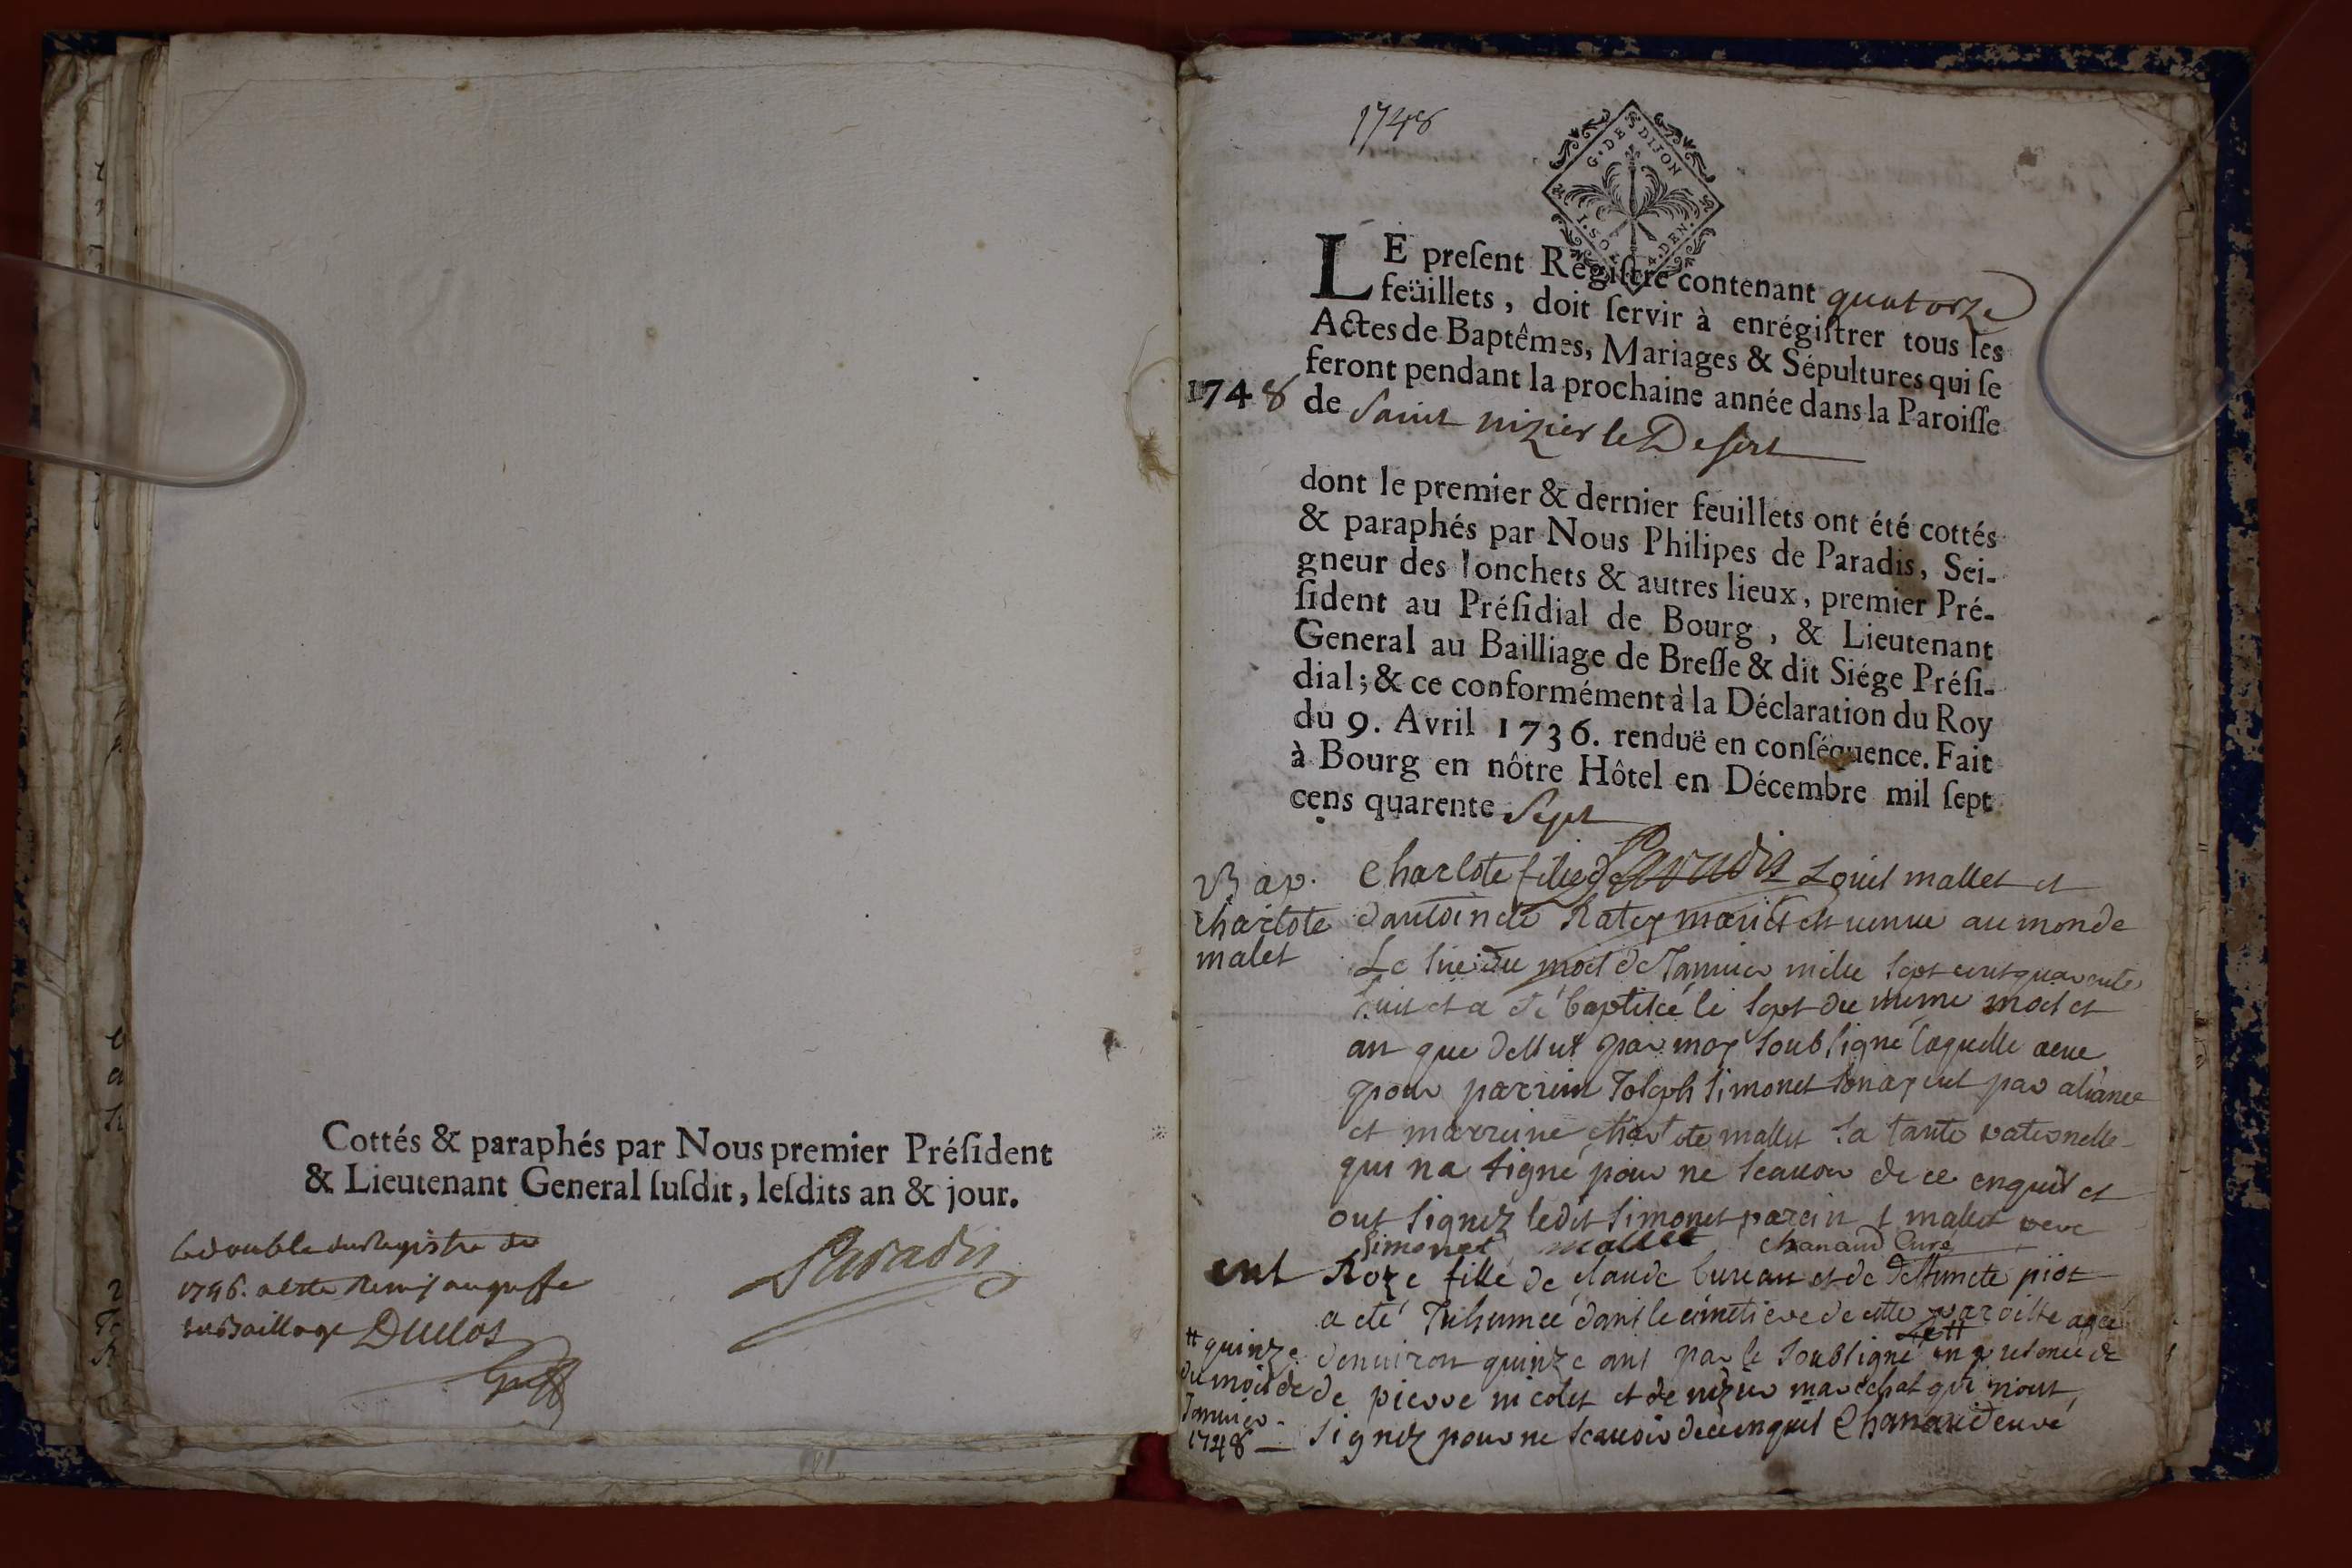 Cottés & paraphés par Nous premier Préſident
& Lieutenant General ſuſdit, leſdits an & jour.
le double du Registre de
1746. a este Remis au greffe
du Baillage Duclos
Paradis
Greff
1748
G. DE DIJON
LE preſent Regiſtre contenant quatorze
feüillets, doit ſervir à enrégiſtrer tous les
Actes de Baptêmes, Mariages & Sépultures qui ſe
feront pendant la prochaine année dans la Paroiſſe
1748 de Saint nizier le Desert
dont le premier & dernier feuillets ont été cottés
& paraphés par Nous Philipes de Paradis, Sei-
gneur des Ionchets & autres lieux, premier Pré-
ſident au Préſidial de Bourg, & Lieutenant
General au Bailliage de Breſſe & dit Siége Préſi-
dial; & ce conformément à la Déclaration du Roy
du 9. Avril 1736. renduë en conſéquence. Fait
à Bourg en nôtre Hôtel en Décembre mil ſept
cens quarente Sept
Paradis
Bap.
charlote
malet
Charlote fille de Louis mallet et
dantoinete Ratey mariés est venue au monde
Le du mois de Janvier mille sept cent quarante
huit et a été baptisée le sept du meme mois et
an que dessus par moy soubsigné laquelle a eue
pour parrein Joseph Simonet son ayeul par aliance
et marreine charlote mallet sa tante paternelle
qui na signé pour ne scauoir de ce enquis et
ont signez ledit Simonet parein et mallet pere
Simonet mallet Chanaud Curé
ent Roze fille de claude bureau et de deffuncte piot
a eté Inhumée dans le cimetiere de cette paroisse agée
denuiron quinze ans par le soubsigné le # en presence de
# quinze
du mois de
Januier
1748
de pierre nicolet et de nizier marechal qui nont
signez pour ne scauoir de ce enquis Chanaud curé